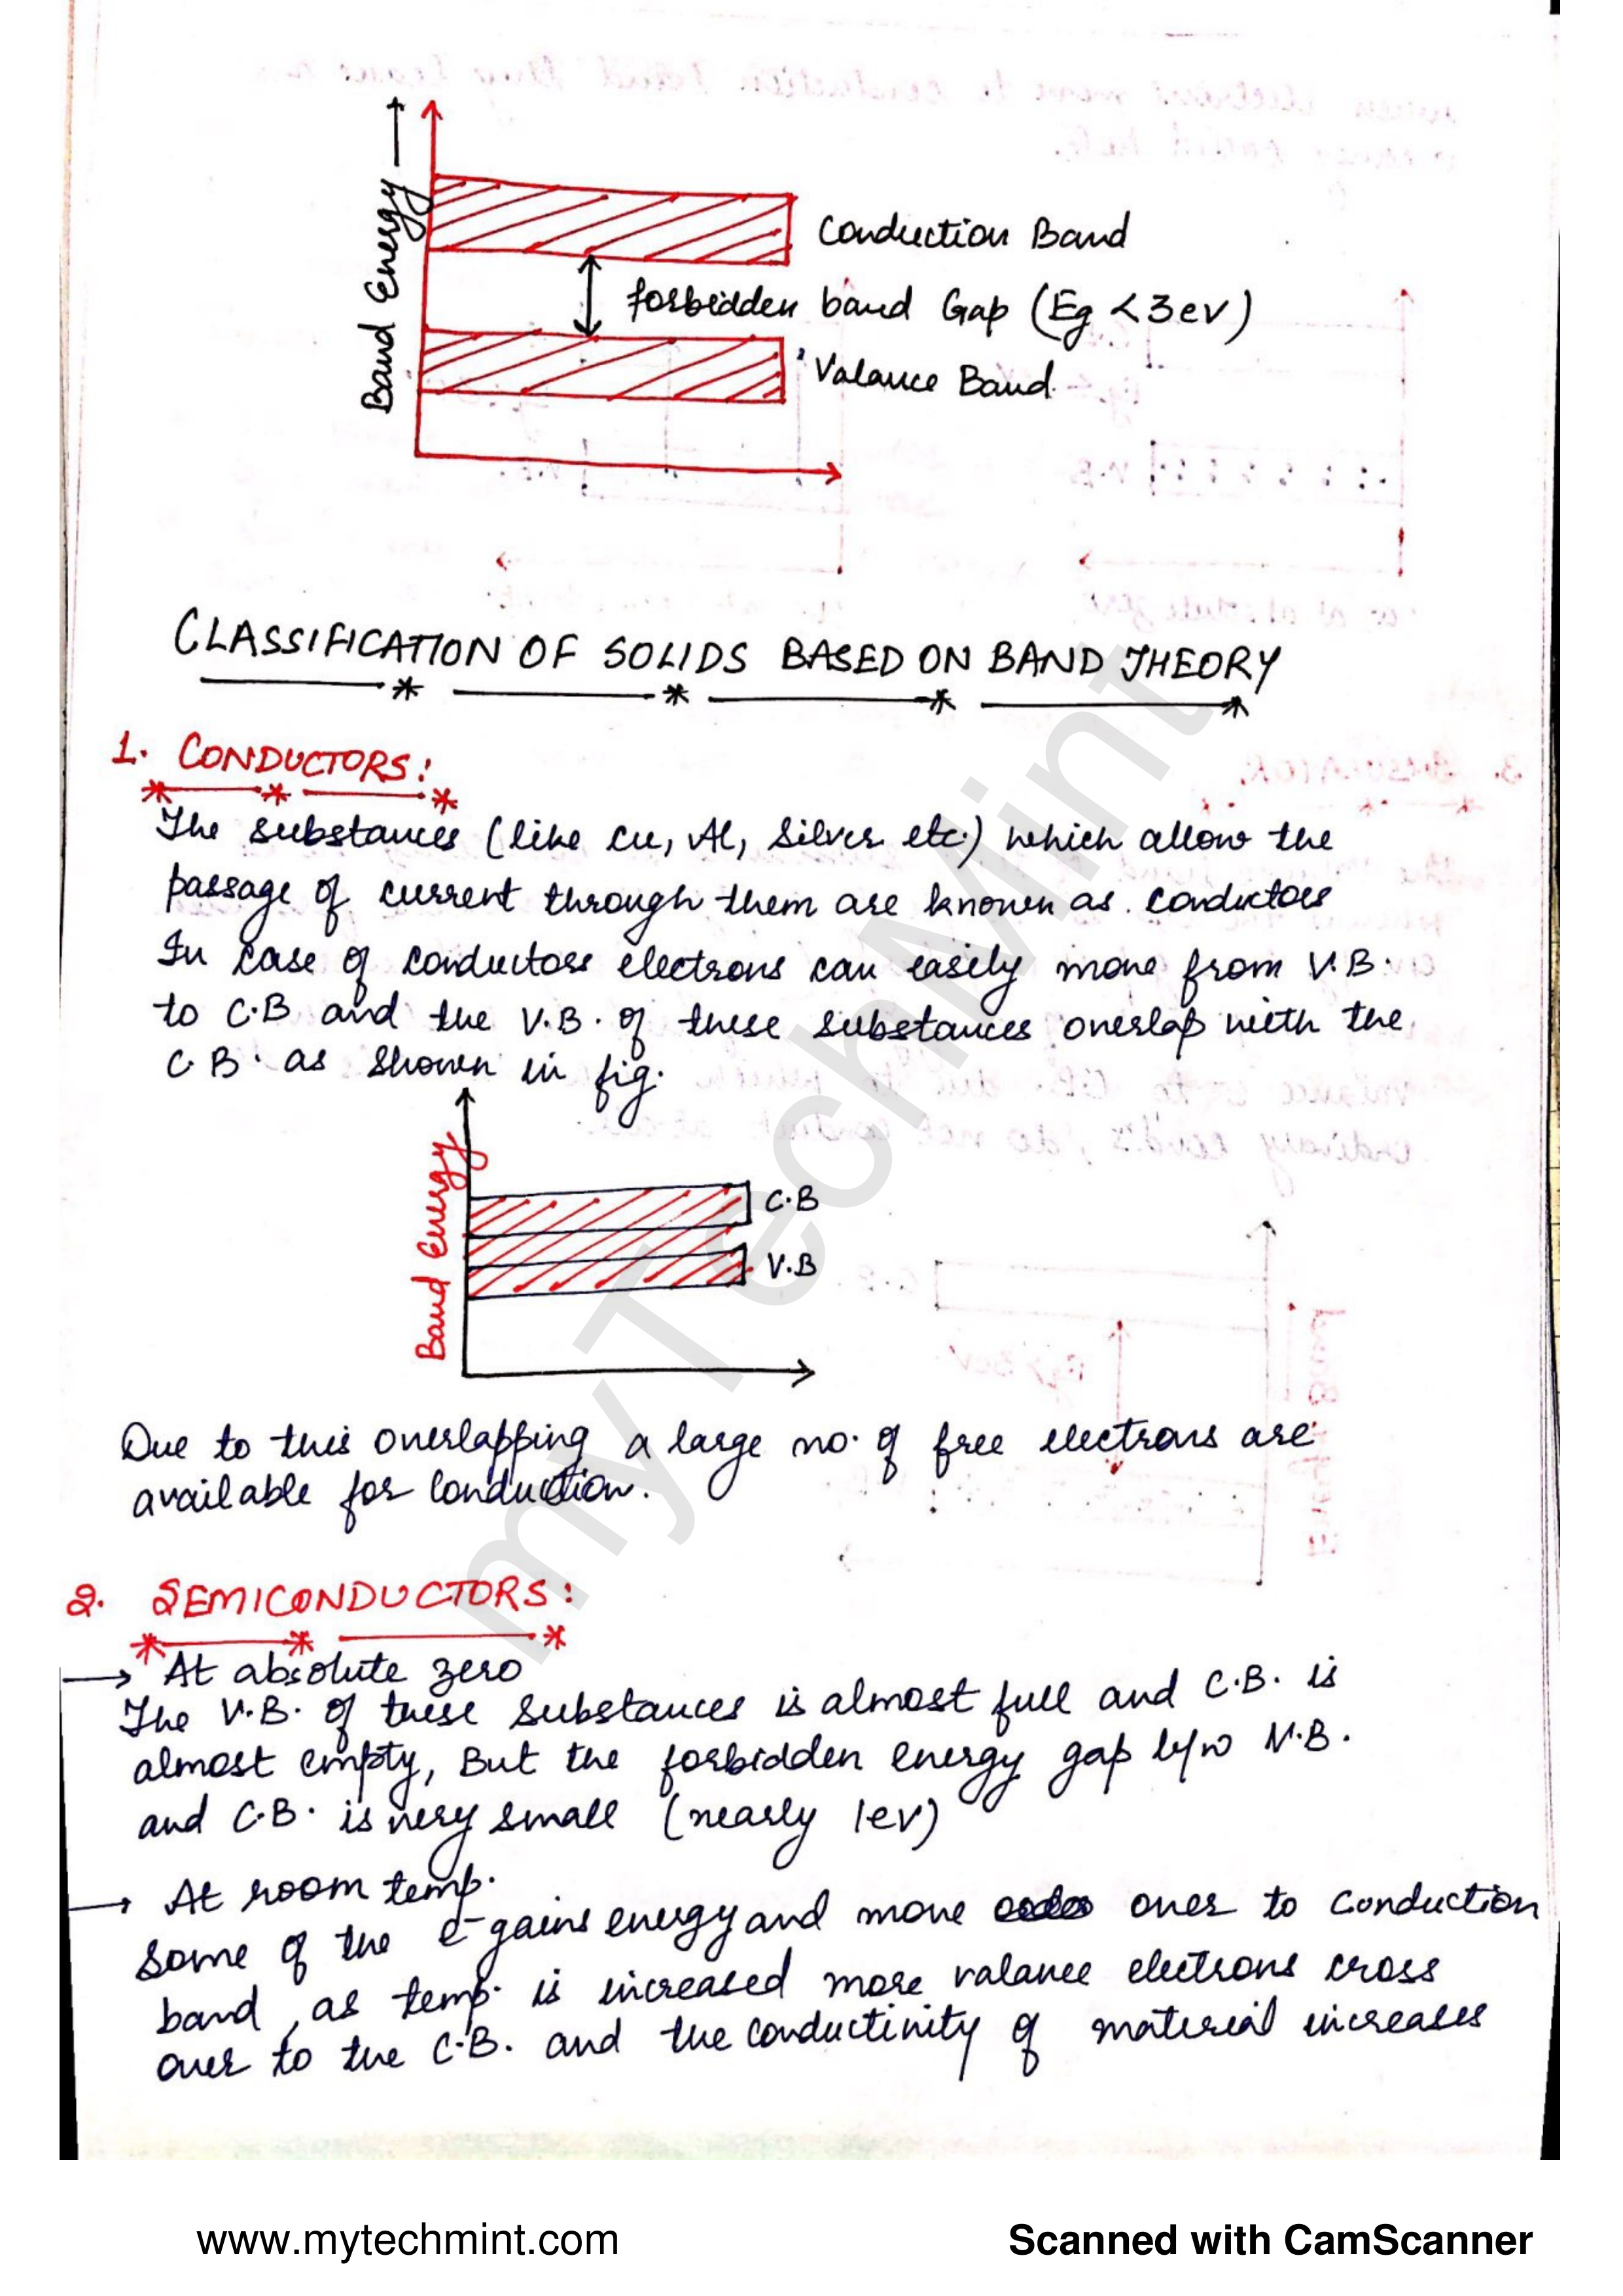 Band Energy
Conduction Band
forbidden band Gap (Eg < 3ev)
Valance Band
CLASSIFICATION OF SOLIDS BASED ON BAND THEORY
1. CONDUCTORS:
The substances (like Cu, Al, Silver etc.) which allow the
passage of current through them are known as conductors
In case of conductors electrons can easily move from V.B.
to C.B and the V.B. of these substances overlap with the
C.B. as shown in fig.
Band Energy
C.B
V.B
Due to this overlapping a large no. of free electrons are
available for Conduction.
2. SEMICONDUCTORS:
→ At absolute zero
The V.B. of these substances is almost full and C.B. is
almost empty, But the forbidden energy gap b/w V.B.
and C.B. is very small (nearly 1ev)
→ At room temp.
Some of the e- gains energy and move over to Conduction
band, as temp. is increased more valance electrons cross
over to the C.B. and the conductivity of material increases
myTechMint
www.mytechmint.com
Scanned with CamScanner